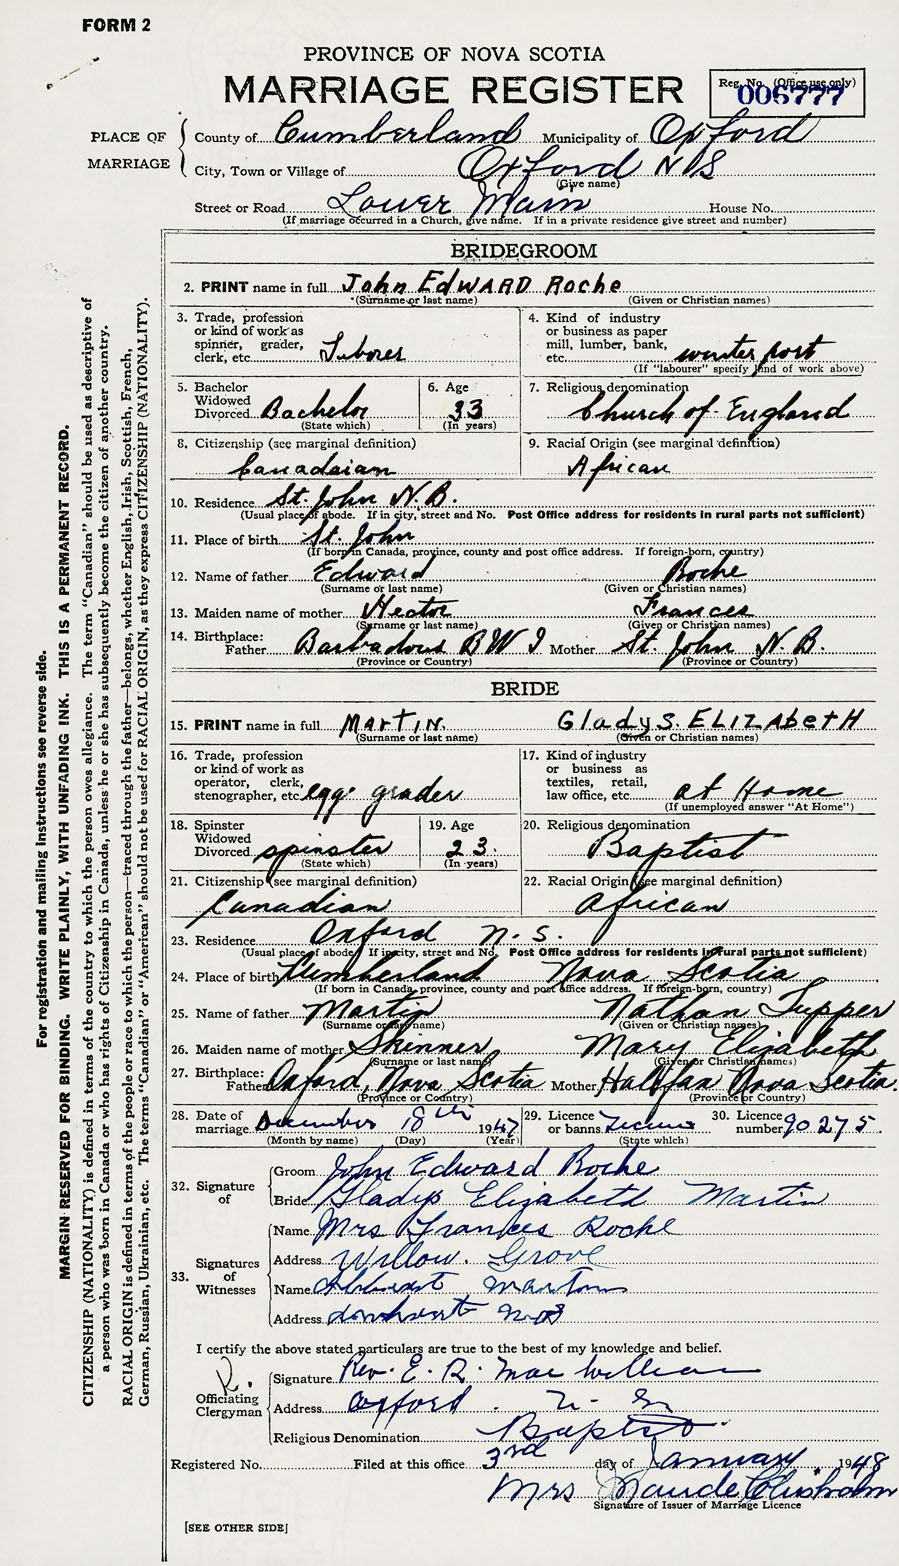 FORM 2
PROVINCE OF NOVA SCOTIA
MARRIAGE REGISTER
Reg. No. (Office use only)
006777
PLACE OF MARRIAGE
County of Cumberland Municipality of Oxford
City, Town or Village of Oxford N S
(Give name)
Street or Road Lower Main House No.
(If marriage occurred in a Church, give name. If in a private residence give street and number)
BRIDEGROOM
2. PRINT name in full John EDWARD Roche
(Surname or last name) (Given or Christian names)
3. Trade, profession or kind of work as spinner, grader, clerk, etc.
4. Kind of industry or business as paper mill, lumber, bank, etc. winter port
(If "labourer" specify kind of work above)
5. Bachelor Widowed Divorced Bachelor
(State which)
6. Age 33
(In years)
7. Religious denomination Church of England
8. Citizenship (see marginal definition) Canadaian
9. Racial Origin (see marginal definition) African
10. Residence St. John N. B.
(Usual place of abode. If in city, street and No. Post Office address for residents in rural parts not sufficient)
11. Place of birth St. John
(If born in Canada, province, county and post office address. If foreign-born, country)
12. Name of father Edward Roche
(Surname or last name) (Given or Christian names)
13. Maiden name of mother Hector Frances
(Surname or last name) (Given or Christian names)
14. Birthplace:
Father Barbadous B W I Mother St. John N. B.
(Province or Country) (Province or Country)
BRIDE
15. PRINT name in full MARTIN. GladyS. ELIZAbeTH
(Surname or last name) (Given or Christian names)
16. Trade, profession or kind of work as operator, clerk, stenographer, etc. egg grader
17. Kind of industry or business as textiles, retail, law office, etc. at Home
(If unemployed answer "At Home")
18. Spinster Widowed Divorced spinster
(State which)
19. Age 23.
(In years)
20. Religious denomination Baptist
21. Citizenship (see marginal definition) Canadian
22. Racial Origin (see marginal definition) African
23. Residence Oxford N. S.
(Usual place of abode. If in city, street and No. Post Office address for residents in rural parts not sufficient)
24. Place of birth Cumberland Nova Scotia
(If born in Canada, province, county and post office address. If foreign-born, country)
25. Name of father Martin Nathan Tupper
(Surname or last name) (Given or Christian names)
26. Maiden name of mother Skinner Mary Elizabeth
(Surname or last name) (Given or Christian names)
27. Birthplace:
Father Oxford, Nova Scotia Mother Halifax Nova Scotia.
(Province or Country) (Province or Country)
28. Date of marriage December 18th 1947
(Month by name) (Day) (Year)
29. Licence or banns
(State which)
30. Licence number 90275
32. Signature of
Groom John Edward Roche
Bride Gladys Elizabeth Martin
33. Signatures of Witnesses
Name Mrs Frances Roche
Address Willow. Grove
Name
Address
I certify the above stated particulars are true to the best of my knowledge and belief.
Officiating Clergyman
Signature Rev. E. R. MacWilliam
Address Oxford. N. S.
Religious Denomination Baptist
Registered No. Filed at this office 3rd day of January 1948
Mrs Maude Chisholm
Signature of Issuer of Marriage Licence
[SEE OTHER SIDE]
For registration and mailing instructions see reverse side.
MARGIN RESERVED FOR BINDING. WRITE PLAINLY, WITH UNFADING INK. THIS IS A PERMANENT RECORD.
CITIZENSHIP (NATIONALITY) is defined in terms of the country to which the person owes allegiance. The term "Canadian" should be used as descriptive of
a person who was born in Canada or who has rights of Citizenship in Canada, unless he or she has subsequently become the citizen of another country.
RACIAL ORIGIN is defined in terms of the people or race to which the person—traced through the father—belongs, whether English, Irish, Scottish, French,
German, Russian, Ukrainian, etc. The terms "Canadian" or "American" should not be used for RACIAL ORIGIN, as they express CITIZENSHIP (NATIONALITY).